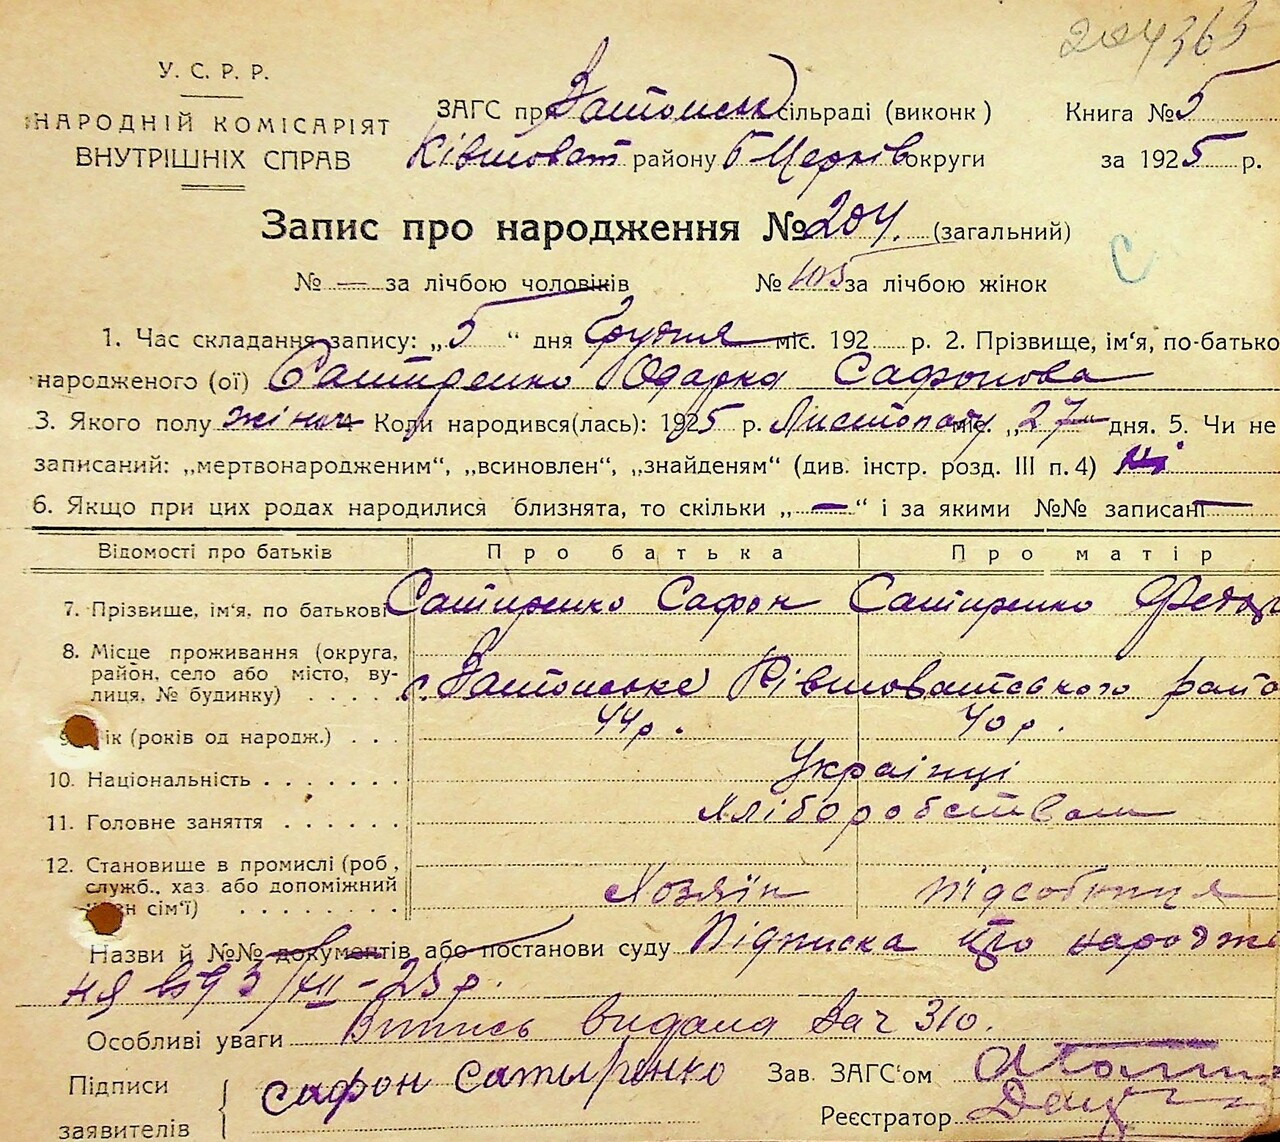 204363
У. С. Р. Р.
НАРОДНІЙ КОМІСАРІЯТ
ВНУТРІШНІХ СПРАВ
ЗАГС при сільраді (виконк)
Книга № 5
Ківшоват району Б Церків округи
за 1925 р.
Запис про народження № 204. (загальний)
№ — за лічбою чоловіків № 105 за лічбою жінок
1. Час складання запису: „5“ дня Грудня міс. 192 р. 2. Прізвище, ім'я, по-батько
народженого (ої) Сатиренко Одарка Сафонова
3. Якого полу жіноч 4 Коли народився(лась): 1925 р. Листопаду міс. „27“ дня. 5. Чи не
записаний: „мертвонародженим“, „всиновлен“, „знайденям“ (див. інстр. розд. III п. 4) ні
6. Якщо при цих родах народилися близнята, то скільки „—“ і за якими №№ записані —
Відомості про батьків Про батька Про матір
7. Прізвище, ім'я, по батькові Сатиренко Сафон Сатиренко
8. Місце проживання (округа,
район, село або місто, ву-
лиця, № будинку) Ківшоватського
9. Вік (років од народж.) 44 р. 40 р.
10. Національність Українці
11. Головне заняття Хліборобством
12. Становище в промислі (роб,
служб., хаз або допоміжний
член сім'ї) Хозяїн підсобниця
Назви й №№ документів або постанови суду Підписка про народжен
ня від 5/XII-25 р.
Особливі уваги Витись видана за ч 310.
Підписи
заявителів
Сафон Сатыренко
Зав. ЗАГС'ом
Реєстратор